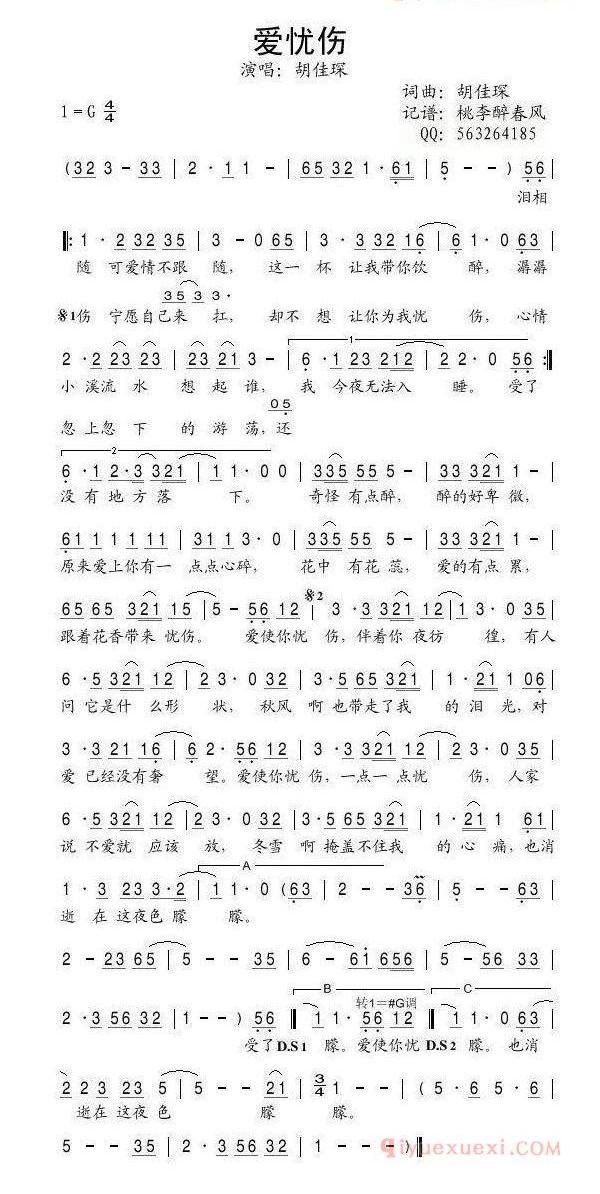 爱忧伤
演唱：胡佳琛
词曲：胡佳琛
1=G 4/4 记谱：桃李醉春风
QQ：563264185
(32 3 - 33 | 2 · 1 1 - | 65 32 1 · 61 | 5 - - ) 56 |
泪相
‖: 1 · 2 32 35 | 3 - 0 65 | 3 · 3 32 16 | 6 1 · 0 63 |
随 可爱情不跟 随， 这一 杯 让我带你饮 醉，潺潺
35 3 3 ·
𝄋1伤 宁愿自己来 扛， 却不 想 让你为我忧 伤，心情
1
2 · 2 23 23 | 23 21 3 - | 6 · 1 23 212 | 2 2 · 0 56 :‖
小 溪流 水 想 起 谁， 我 今夜无法入 睡。受了
05
忽 上忽 下 的 游 荡，还
2
6 · 1 2·3 321 | 1 1 · 0 0 | 335 55 5 - | 33 321 5 - |
没 有 地 方 落 下。 奇怪 有点醉， 醉的好卑 微，
61 1 1 1 11 | 31 1 3 · 0 | 335 55 5 - | 33 321 5 - |
原来爱上你有一 点点心碎， 花中 有花 蕊， 爱的有点 累，
𝄋2
65 65 321 15 | 5 - 56 12 | 3 · 3 3212 12 | 2 3 · 0 35 |
跟着花香带来 忧伤。 爱使你忧 伤，伴着你 夜彷 徨，有人
6 · 5 3212 12 | 2 3 · 0 32 | 3 · 5 65 321 | 1 · 21 1 06 |
问 它是什 么形 状， 秋风 啊 也带走了我 的 泪 光，对
3 · 3 21 16 | 6 2 · 56 12 | 3 · 3 3212 12 | 2 3 · 0 35 |
爱 已经没有奢 望。爱使你忧 伤，一点一 点忧 伤，人家
6 · 5 3212 12 | 2 3 · 0 32 | 3 · 5 65 321 | 1 · 21 1 61 |
说 不爱就 应该 放， 冬雪 啊 掩盖不住我 的 心 痛，也消
A
1 · 3 23 3·2 | 1 1 · 0 (63 | 2 - - 36 | 5 - - 63 |
逝 在 这夜色 朦 朦。
2 - 23 65 | 5 - - 35 | 6 - 61 656 | 5 - 56 33 |
B 转1=#G调 C
2 · 3 56 32 | 1 - - ) 56 ‖ 1 1 · 56 12 ‖ 1 1 · 0 63 |
受了D.S1 朦。爱使你忧 D.S2 朦。也消
2 23 23 5 | 5 - - 21 | 3/4 1 - - | (5 · 5 35 |
逝 在 这夜 色 朦 朦。
5 - - 35 | 2 · 3 56 32 | 1 - - ) ‖
iyuexuexi.com